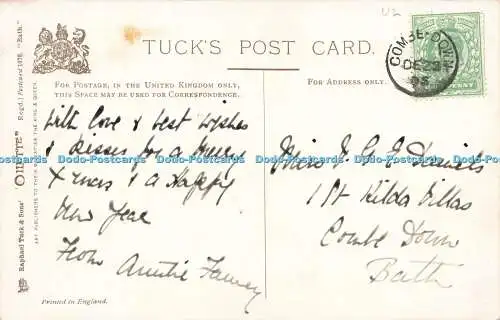 TUCK'S POST CARD.
FOR POSTAGE, IN THE UNITED KINGDOM ONLY,
THIS SPACE MAY BE USED FOR CORRESPONDENCE.
FOR ADDRESS ONLY.
COMBE-DOWN
DE 23
05
With love & best wishes
& kisses for a Merry
Xmas & a Happy
New Year
From Auntie Fanny
Miss
Daniels
1 St Kilda Villas
Combe Down
Bath
Raphael Tuck & Sons' "OILETTE" Regd. Postcard "Bath."
ART PUBLISHERS TO THEIR MAJESTIES THE KING & QUEEN.
Printed in England.
Dodo-Postcards Dodo-Postcards Dodo-Postcards Dodo-Postcards Dodo-Postcards Dodo-Postcards